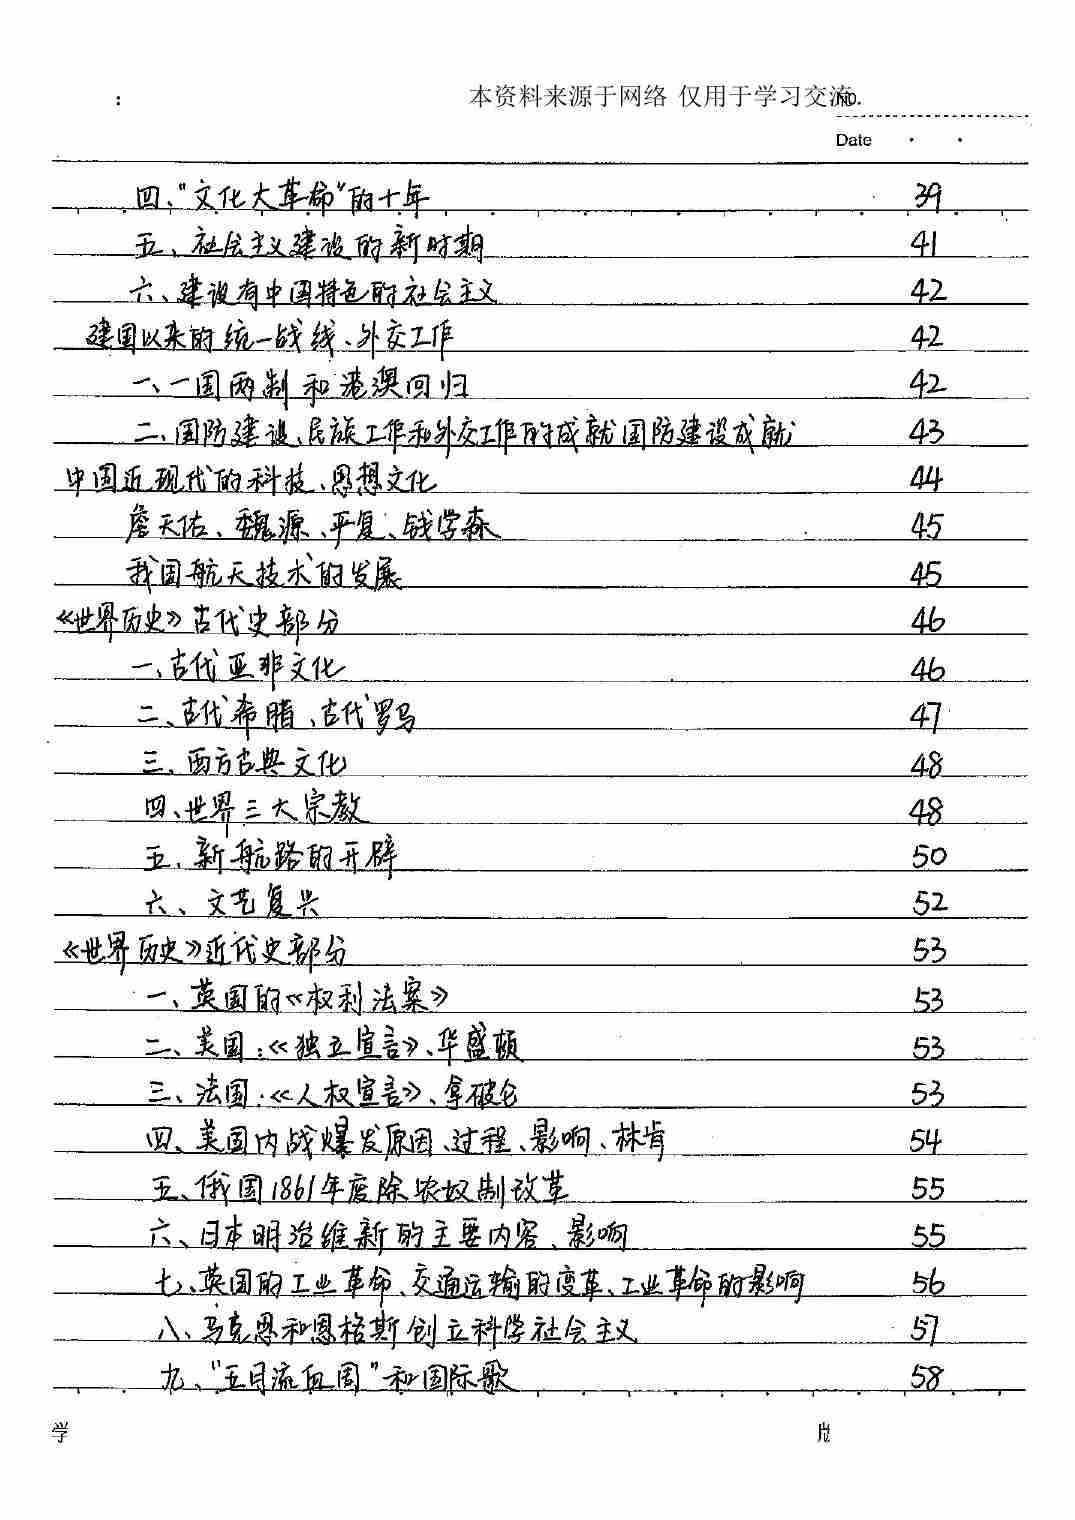 :
本资料来源于网络 仅用于学习交流 NO.
Date
四、"文化大革命"的十年 39
五、社会主义建设的新时期 41
六、建设有中国特色的社会主义 42
建国以来的统一战线、外交工作 42
一、一国两制和港澳回归 42
二、国防建设、民族工作和外交工作的成就国防建设成就 43
中国近现代的科技、思想文化 44
詹天佑、魏源、严复、钱学森 45
我国航天技术的发展 45
《世界历史》古代史部分 46
一、古代亚非文化 46
二、古代希腊、古代罗马 47
三、西方古典文化 48
四、世界三大宗教 48
五、新航路的开辟 50
六、文艺复兴 52
《世界历史》近代史部分 53
一、英国的《权利法案》 53
二、美国:《独立宣言》、华盛顿 53
三、法国:《人权宣言》、拿破仑 53
四、美国内战爆发原因、过程、影响、林肯 54
五、俄国1861年废除农奴制改革 55
六、日本明治维新的主要内容、影响 55
七、英国的工业革命、交通运输的变革、工业革命的影响 56
八、马克思和恩格斯创立科学社会主义 57
九、"五月流血周"和国际歌 58
学